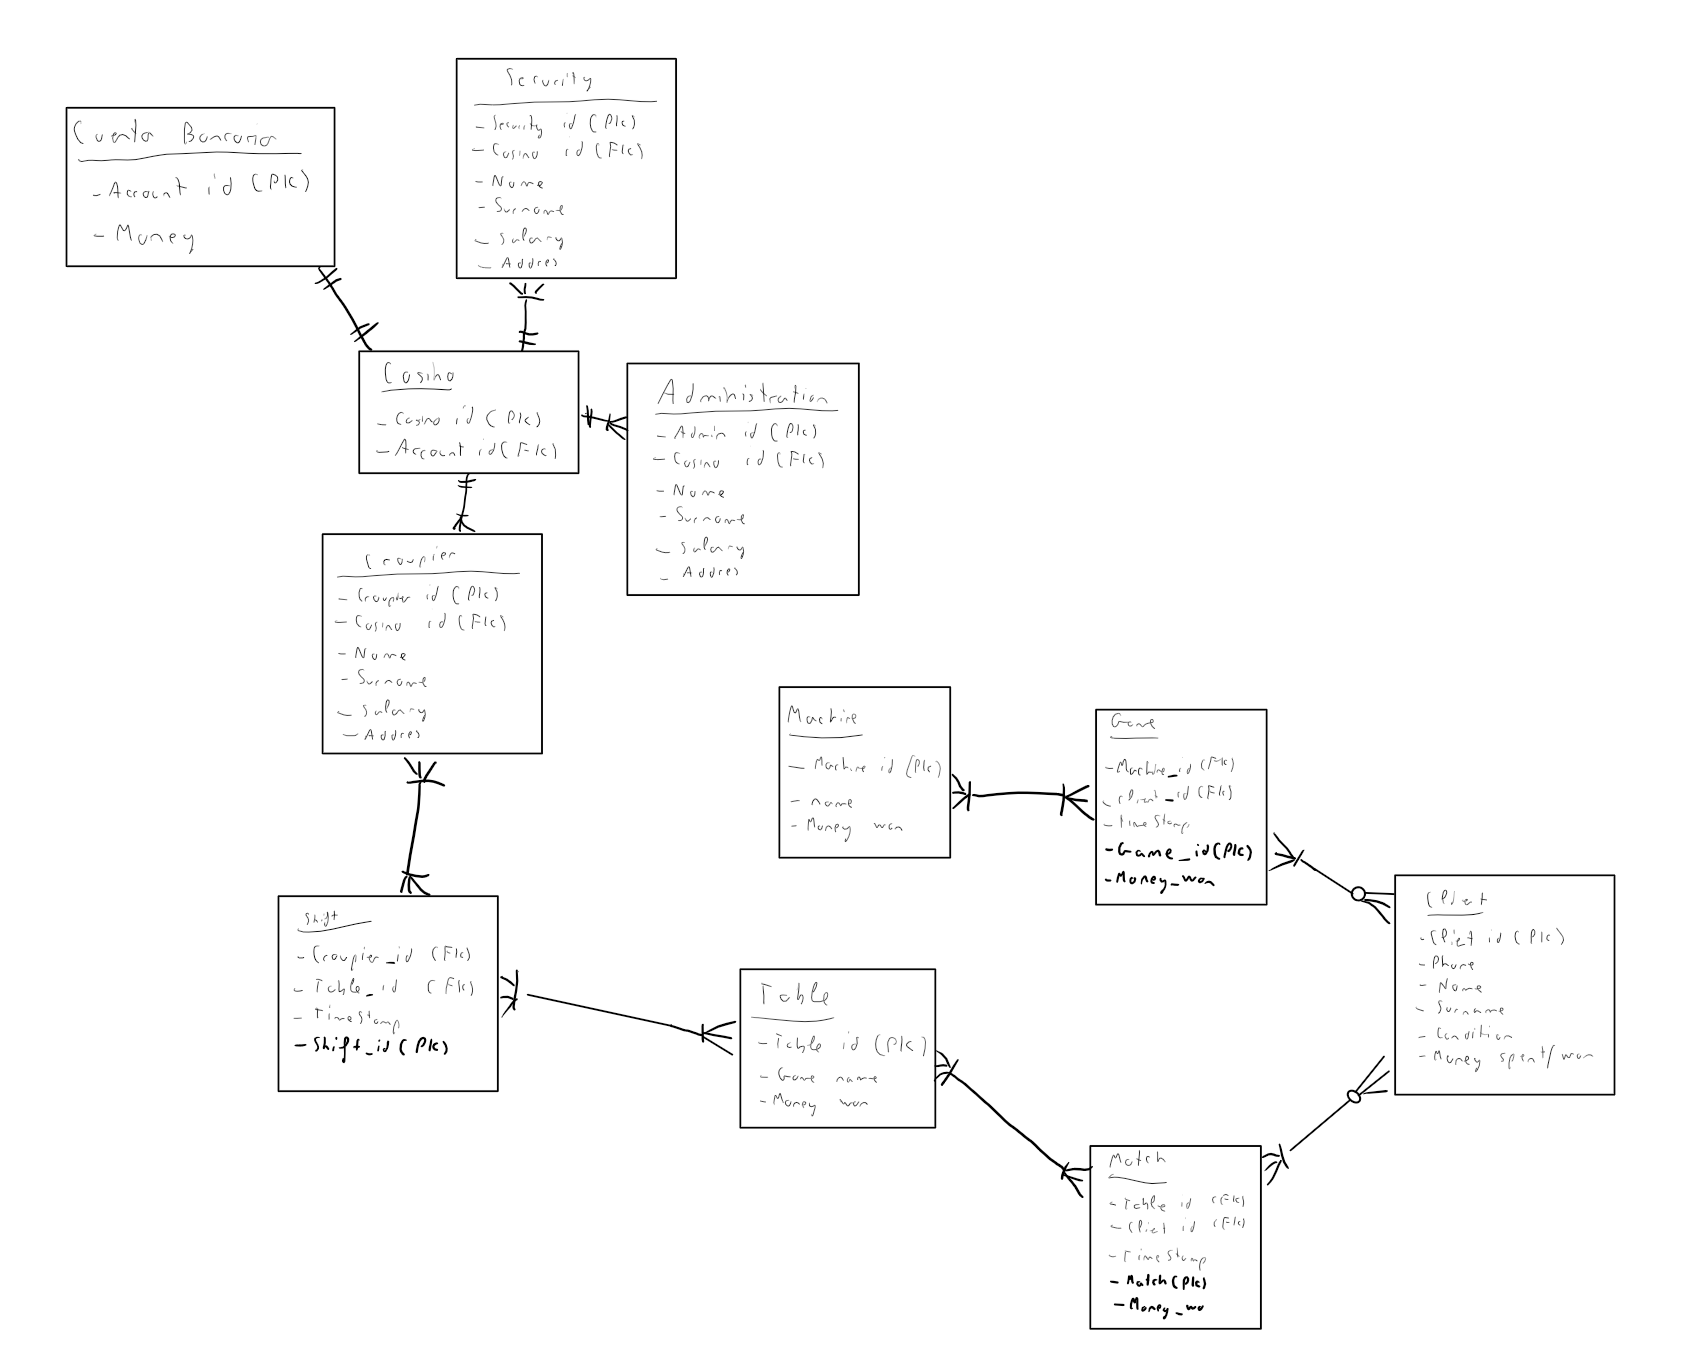 Security
- Security id (PK)
- Casino id (FK)
- Name
- Surname
- Salary
- Addres
Cuenta Bancaria
- Account id (PK)
- Money
Casino
- Casino id (PK)
- Account id (FK)
Administration
- Admin id (PK)
- Casino id (FK)
- Name
- Surname
- Salary
- Addres
Croupier
- Croupier id (PK)
- Casino id (FK)
- Name
- Surname
- Salary
- Addres
Machine
- Machine id (PK)
- name
- Money won
Game
- Machine_id (FK)
- Client_id (FK)
- TimeStamp
- Game_id (PK)
- Money_won
Cliet
- Cliet id (PK)
- Phone
- Name
- Surname
- Condition
- Money spent/won
Shift
- Croupier_id (FK)
- Table_id (FK)
- TimeStamp
- Shift_id (PK)
Table
- Table id (PK)
- Game name
- Money won
Match
- Table id (FK)
- Cliet id (FK)
- TimeStamp
- Match (PK)
- Money_wo